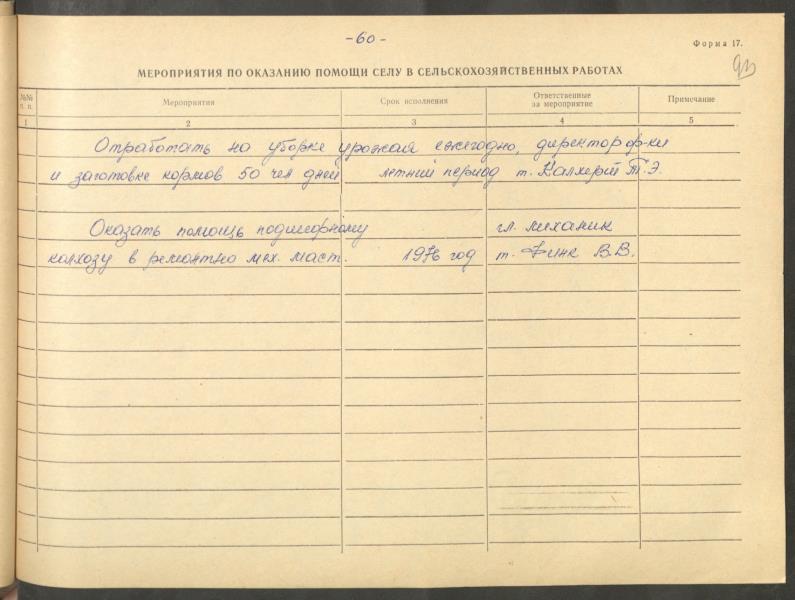 -60-
Форма 17.
93
МЕРОПРИЯТИЯ ПО ОКАЗАНИЮ ПОМОЩИ СЕЛУ В СЕЛЬСКОХОЗЯЙСТВЕННЫХ РАБОТАХ
№№ п. п. Мероприятия Срок исполнения Ответственные за мероприятие Примечание
1 2 3 4 5
Отработать на уборке урожая ежегодно, директор ф-ки
и заготовке кормов 50 чел дней летний период т. Т.Э.
Оказать помощь подшефному гл. механик
колхозу в ремонтно мех. маст. 1976 год т. Финк В.В.